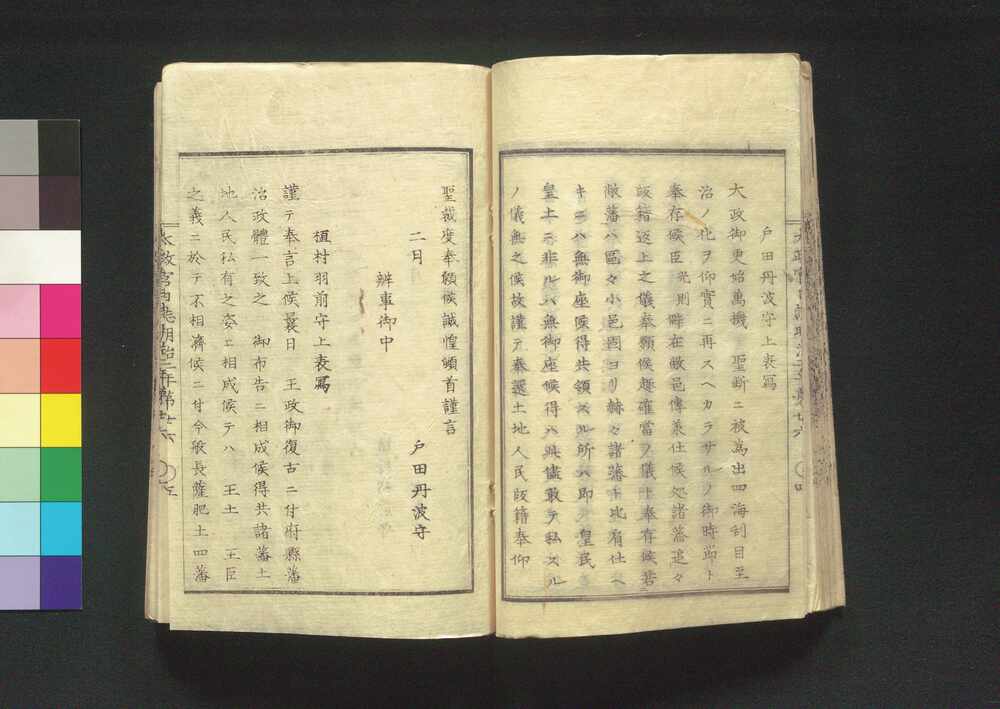 戸田丹波守上表寫
大政御更始萬機　聖斷ニ被爲出四海刮目至
治ノ化ヲ仰實ニ再スヘカラサルノ御時節ト
奉存候臣　光則時在敝邑傳兼仕候処諸藩追々
版籍返上之儀奉願候趣確當ノ儀ト奉存候若
敝藩ハ區々小邑固ヨリ赫々諸藩ト比肩仕ヘ
キニハ無御座候得共領スル所ハ即　皇民
皇土ニ非ルハ無御座候得ハ其儘敢テ私スル
ノ儀無之候故謹テ奉還土地人民版籍奉仰
聖裁度奉願候誠惶頓首謹言
二月　戸田丹波守
辨事御中
植村羽前守上表寫
謹テ奉言上候曩日　王政御復古ニ付府縣藩
治政體一致之　御布告ニ相成候得共諸藩土
地人民私有之姿ニ相成候テハ　王土　王臣
之義ニ於テ不相濟候ニ付今般長薩肥土四藩